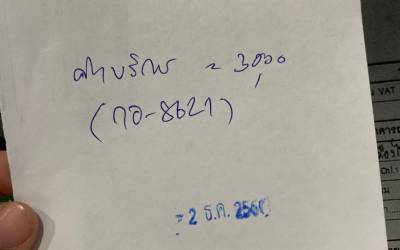 ค่าบริการ = 3,000
(กอ-8621)
= 2 ธ.ค. 256
VAT